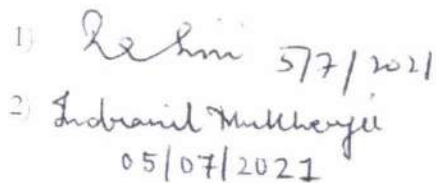 1) Reshmi 5/7/2021
2) Indranil Mukherjee
05/07/2021